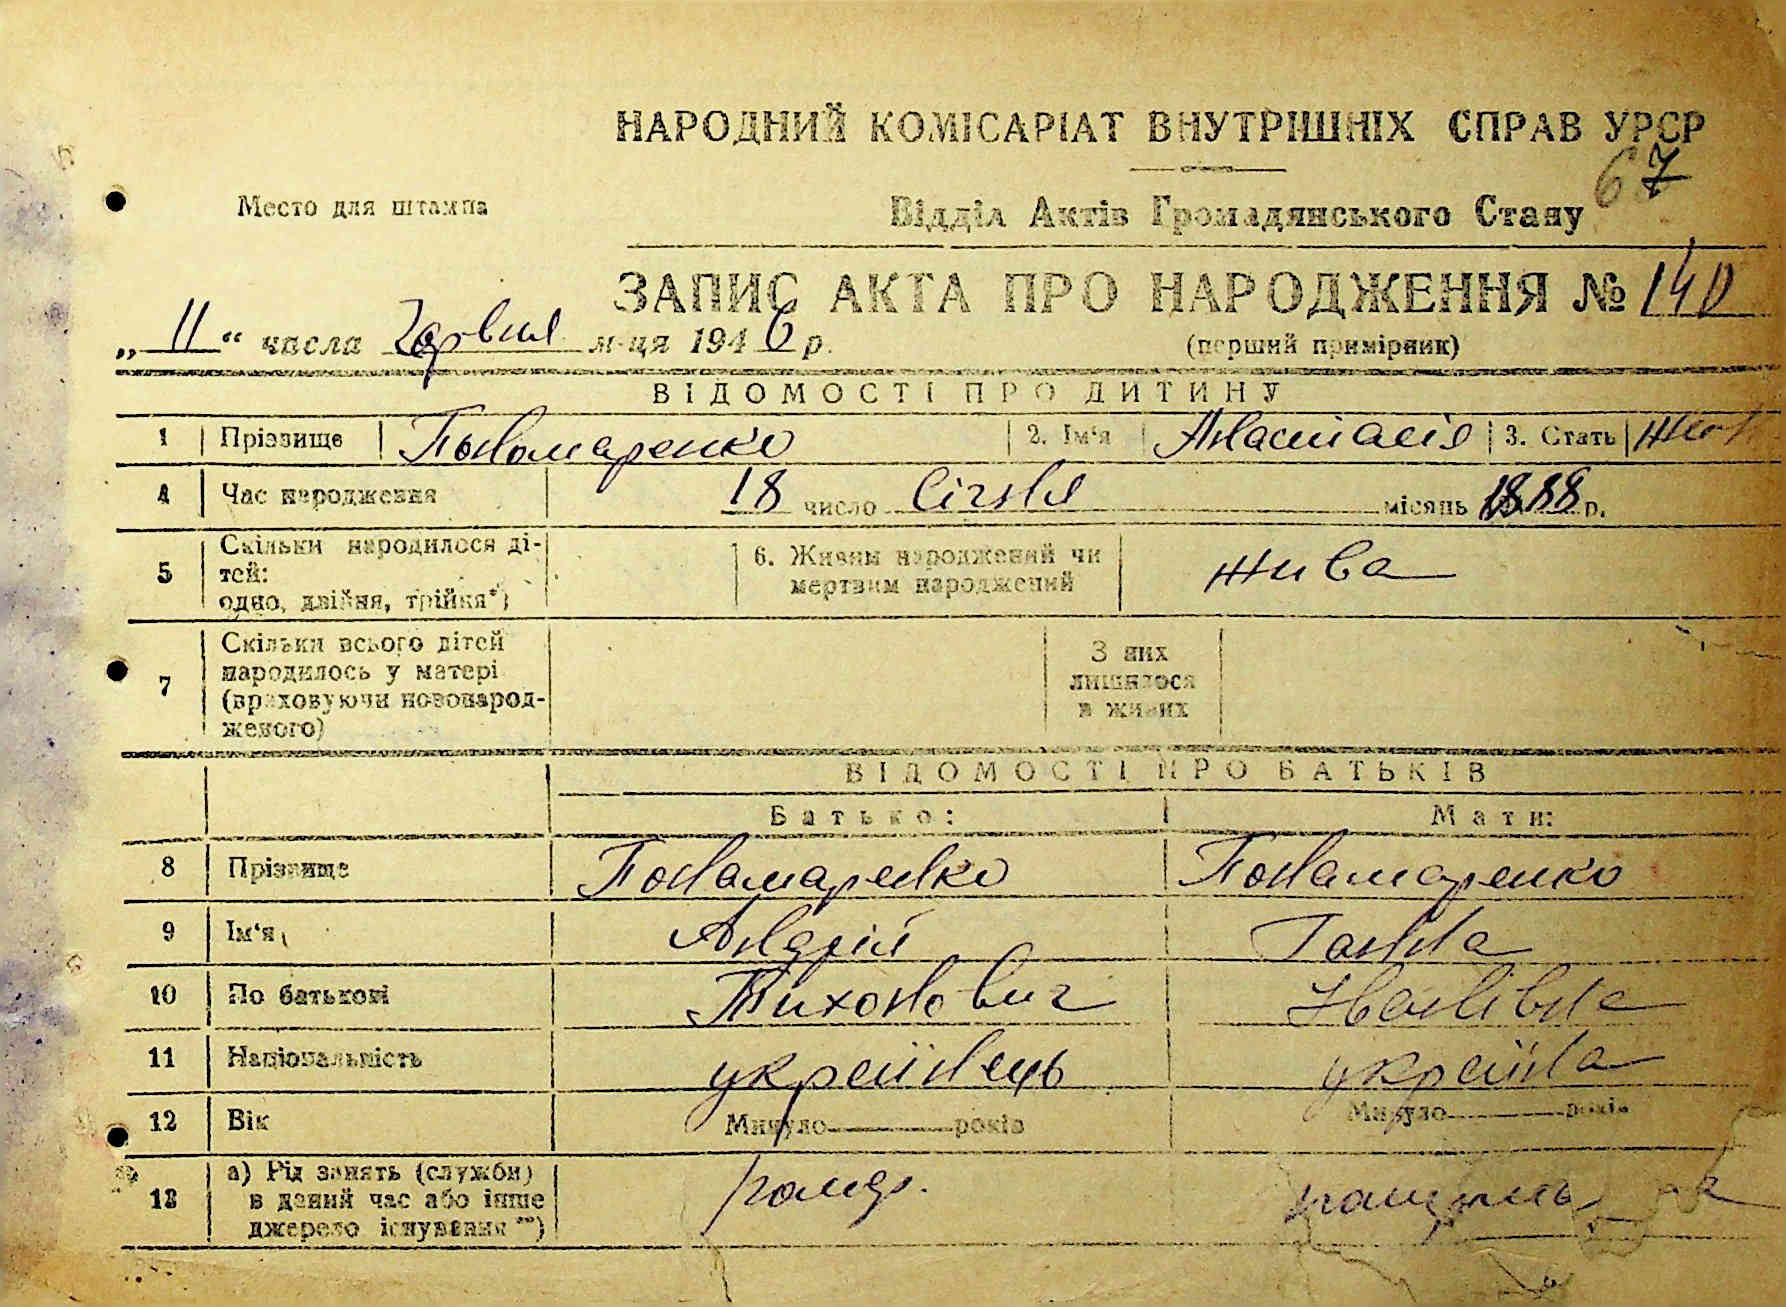 НАРОДНИЙ КОМІСАРІАТ ВНУТРІШНІХ СПРАВ УРСР
67
Место для штампа
Відділ Актів Громадянського Стану
ЗАПИС АКТА ПРО НАРОДЖЕННЯ № 140
„ 11 “ числа Червня м-ця 1946 р.
(перший примірник)
ВІДОМОСТІ ПРО ДИТИНУ
1 Прізвище Пономаренко 2. Ім‘я Анастасія 3. Стать жін
4 Час народження 18 число Січня місяць 1888 р.
5 Скільки народилося ді-
тей:
одно, двійня, трійня*)
6. Живим народжений чи
мертвим народжений
жива
7 Скільки всього дітей
народилось у матері
(враховуючи новонарод-
женого)
З них
лишилося
в живих
ВІДОМОСТІ ПРО БАТЬКІВ
Батько: Мати:
8 Прізвище Понамаренко Понамаренко
9 Ім‘я Андрій Ганна
10 По батькові Тихонович Іванівна
11 Національність українець українка
12 Вік Минуло років Минуло років
13 а) Рід занять (служби)
в даний час або інше
джерело існування **)